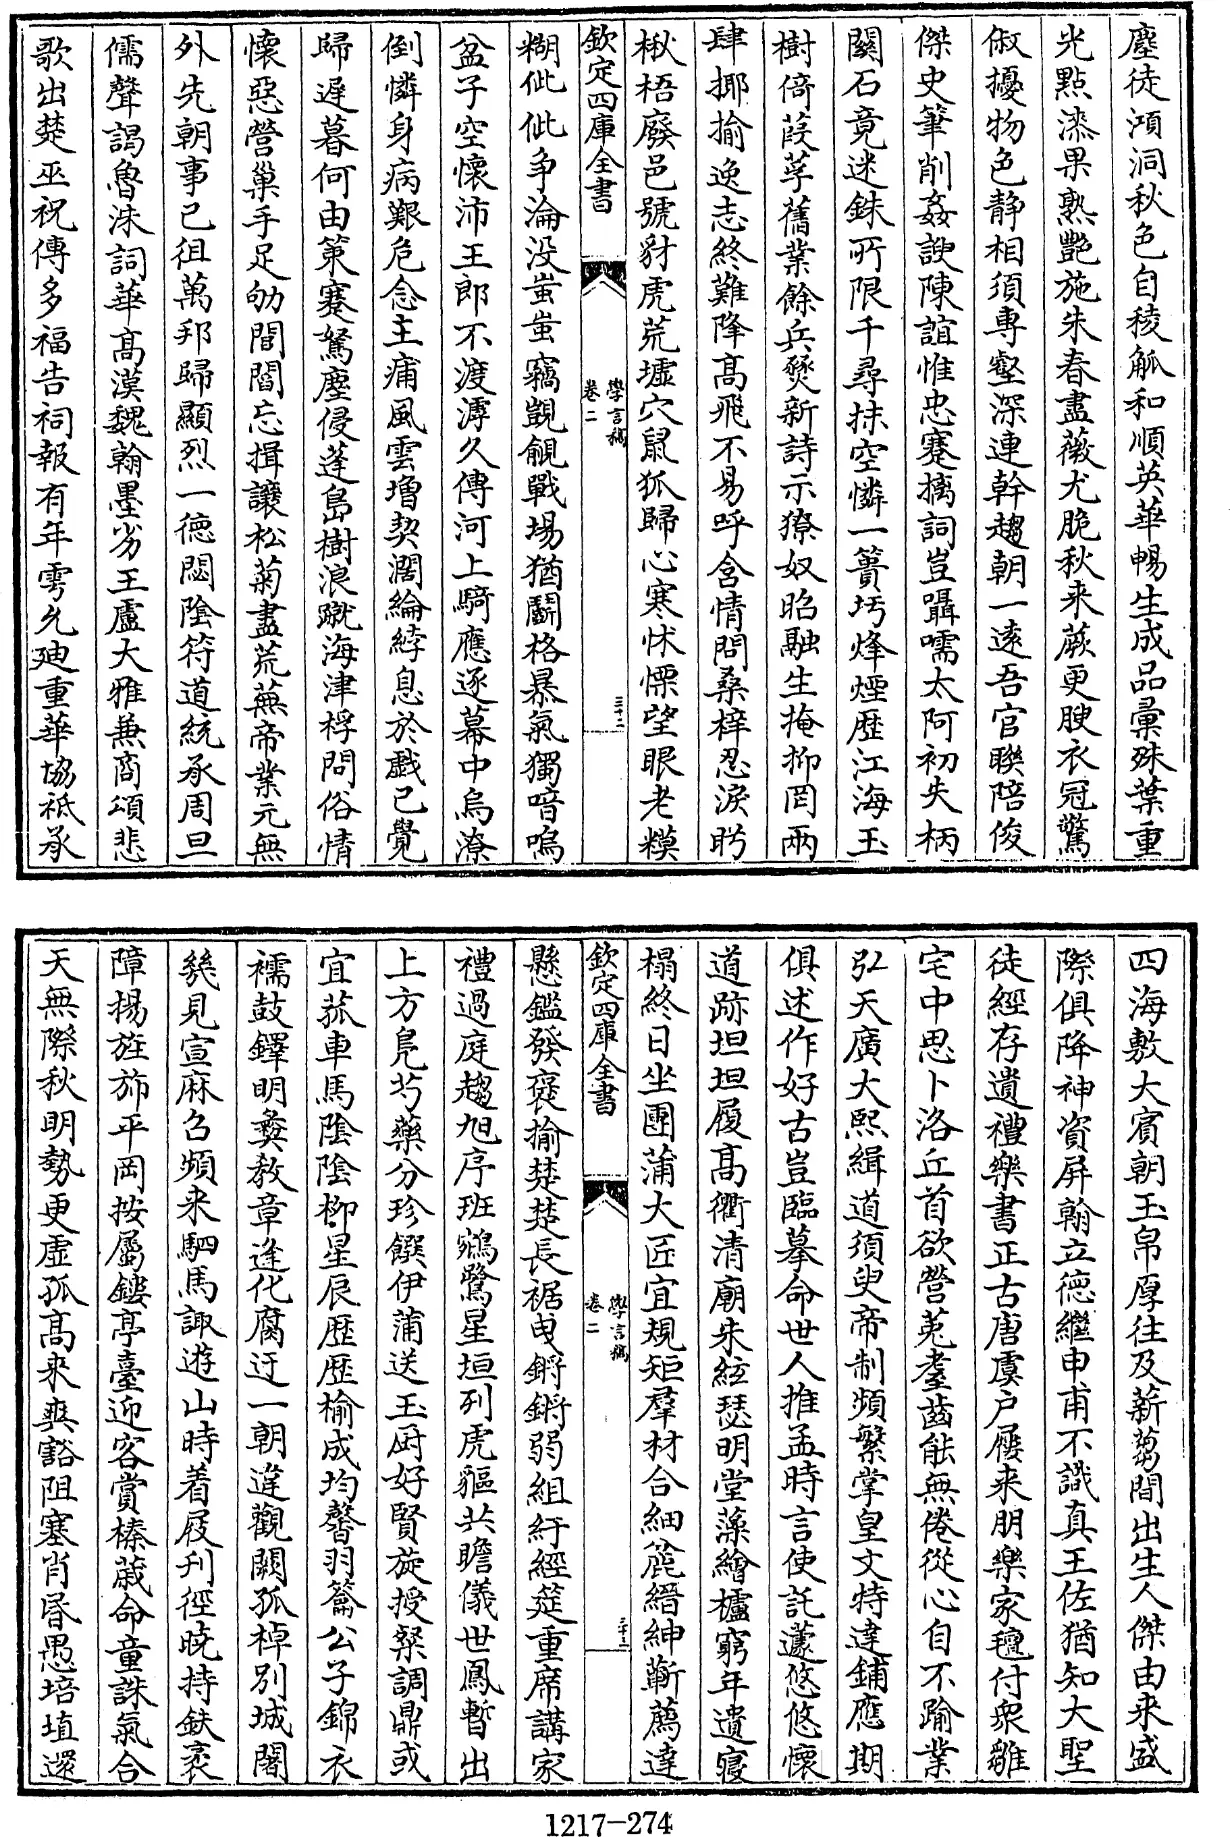 塵徒澒洞秋色自稜觚和順英華暢生成品彚殊葉重
光點漆果熟艶施朱春盡薇尤脆秋来蕨更腴衣冠驚
俶擾物色靜相須専壑深連幹趨朝一逺吾官聯陪俊
傑史筆削姦諛陳誼惟忠蹇摛詞豈囁嚅太阿初失柄
關石竟迷銖所限千尋抹空憐一簣圬烽煙歴江海玉
樹倚葭莩舊業餘兵燹新詩示獠奴昭融生掩抑罔兩
肆揶揄逸志終難降髙飛不易呼含情問桑梓忍淚眄
楸梧廢邑號豺虎荒墟穴鼠狐歸心寒怵慄望眼老糢
欽定四庫全書
學言稿
卷二
三十二
糊佌佌争淪没蚩蚩竊覬覦戰場猶鬭格暴氣獨喑嗚
盆子空懷沛王郎不渡滹久傳河上騎應逐幕中烏潦
倒憐身病艱危念主痡風雲増契濶綸綍息於戲已覺
歸遲暮何由策蹇駑塵侵蓬島樹浪蹴海津桴問俗情
懷惡營巢手足劬閭閻忘揖讓松菊盡荒蕪帝業元無
外先朝事已徂萬邦歸顯烈一徳閟陰符道統承周旦
儒聲謁魯洙詞華髙漢魏翰墨劣王盧大雅兼商頌悲
歌出楚巫祝傳多福告祠報有年雩允廸重華恊祗承
四海敷大賓朝玉帛厚往及薪蒭間出生人傑由来盛
際俱降神資屏翰立徳繼申甫不識真王佐猶知大聖
徒經存遺禮樂書正古唐虞户屨来朋樂家氊付衆雛
宅中思卜洛丘首欲營菟耋齒能無倦從心自不踰業
弘天廣大熙緝道須臾帝制頻繁掌皇文特達鋪應期
俱述作好古豈臨摹命世人推孟時言使託蘧悠悠懷
道跡坦坦履髙衢清廟朱絃瑟明堂藻繪櫨窮年遺寢
榻終日坐團蒲大匠宜規矩羣材合細麄縉紳蘄薦達
欽定四庫全書
學言稿
卷二
三十三
懸鑑發褒揄楚楚長裾曳鏘鏘弱組紆經筵重席講家
禮過庭趨旭序班鵷鷺星垣列虎貙共瞻儀世鳳暫出
上方鳧芍藥分珍饌伊蒲送玉厨好賢旋授粲調鼎或
宜菰車馬陰陰柳星辰歴歴榆成均磬羽籥公子錦衣
襦鼓鐸明彜教章逢化腐迂一朝違觀闕孤棹别城闍
幾見宣麻召頻来駟馬諏遊山時着屐刋徑晩持鈇袤
障揚旌斾平岡按屬鏤亭臺迎客賞榛蕆命童誅氣合
天無際秋明勢更虚孤髙来爽豁阻塞肖昬愚培埴還
1217-274